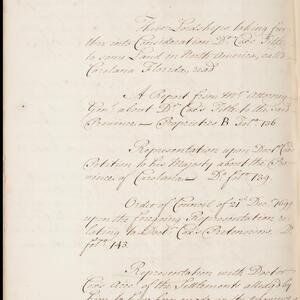 Their Lordships taking fur
ther into Consideration Dr Cox's Title
to some Land in North America, called
Carolana Florida, read
A Report from Mr Attorney
Gen.l about Dr Cox's Title to the said
Province - Proprieties B. Fol.o 136
Representation upon Doct.r Cox's
Petition to his Majesty about the Pro
vince of Carolana - D.o fol.o 139.
Order of Council of 21st Dec.r 1699
upon the foregoing Representation re
lating to Doct.r Cox's Pretensions. D.o
fol.o 143.
Representation with Doctor
Cox's Acc.t of the Settlement alledged by
him to have been made in the